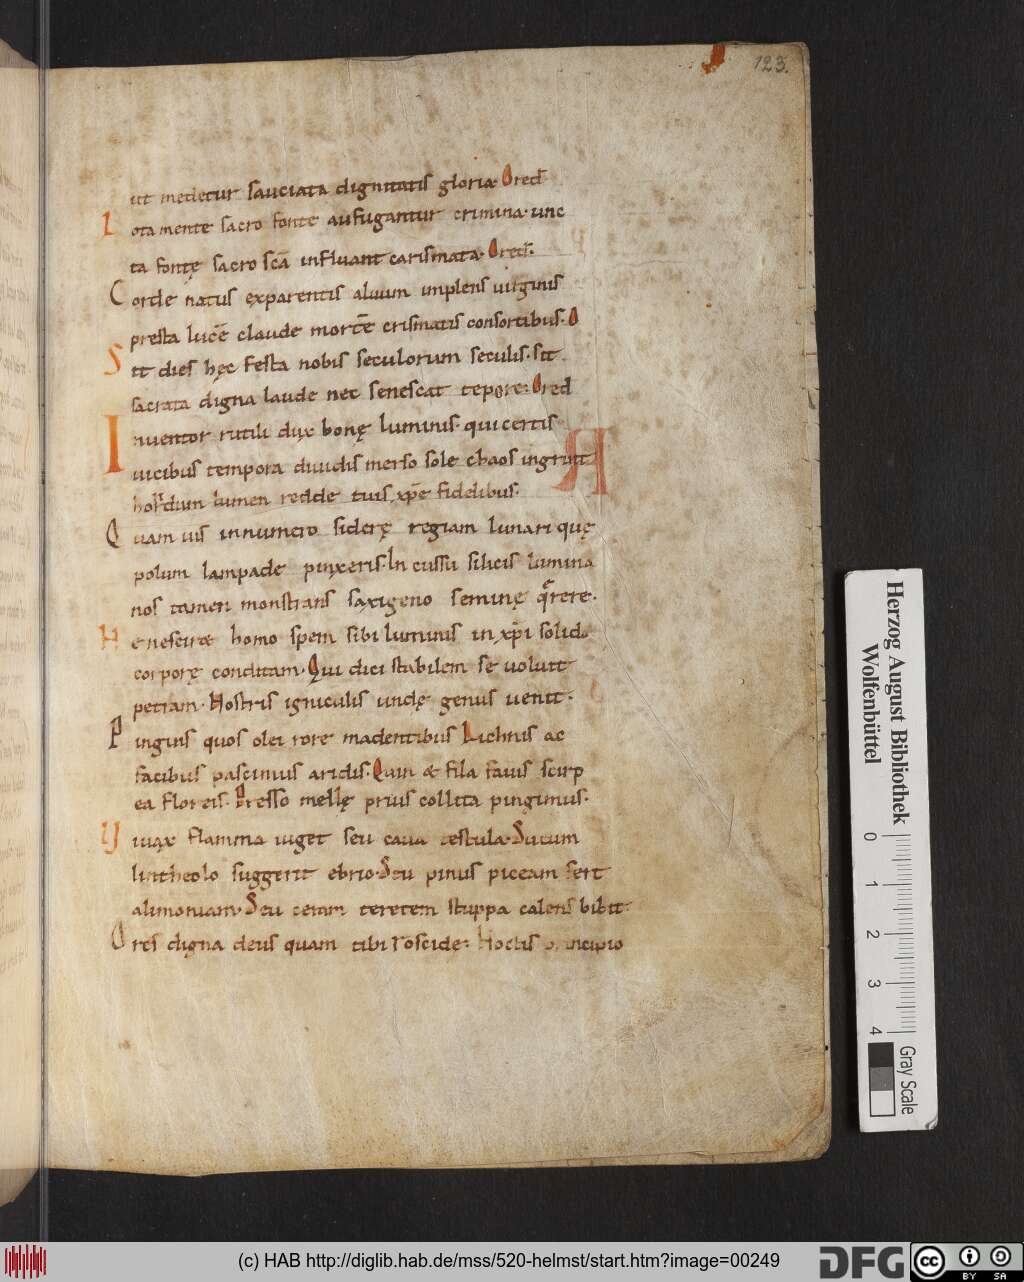 123.
ut medetur sauciata dignitatis gloria. O red̄
Lota mente sacro fonte aufugantur crimina. unc
ta fontę sacro sc̄a influant carismata. O red̄.
Corde natus exparentis aluum implens uirginis
presta lucē claude mortē crismatis consortibus. O
Sit dies hęc festa nobis seculorum seculis. sit
sacrata digna laude nec senescat tepore: O red
Inuentor rutili dux bonę luminis. qui certis
uicibus tempora diuidis merso sole chaos ingruit
horridum lumen redde tuis xp̄e fidelibus.
Quam uis innumero siderę regiam lunari quę
polum lampade pinxeris. In cussu silicis lumina
nos tamen monstrans saxigeno seminę quęrere.
Ne nesciræ homo spem sibi luminis in xp̄i solido
corporę conditam. Qui dici stabilem se uoluit
petram. Nostris igniculis undę genus uenit.
Pinguis quos olei rore madentibus Lichnis ac
facibus pascimus aridis. Quin & fila fauis scirp
ea floreis. Presso mellę prius collita pingimus.
Viuax flamma uiget seu caua testula. Sucum
lintheolo suggerit ebrio. Seu pinus piceam fert
alimoniam. Seu ceram teretem stuppa calens bibit.
O res digna deus quam tibi roscide: Noctis principio
Herzog August Bibliothek
Wolfenbüttel
0 1 2 3 4
Gray Scale
(c) HAB http://diglib.hab.de/mss/520-helmst/start.htm?image=00249
DFG
cc
BY SA